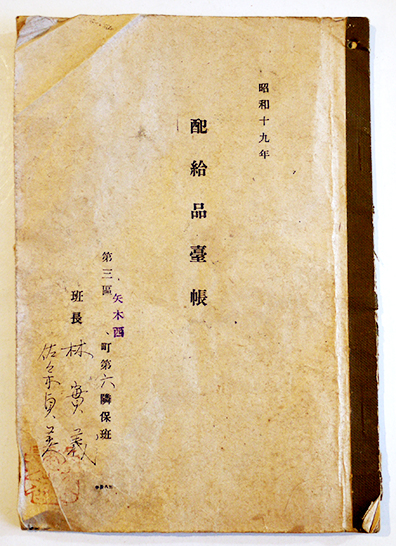 昭和十九年
配給品臺帳
第三區矢木西町第六隣保班
班長 林實義
佐々木貞